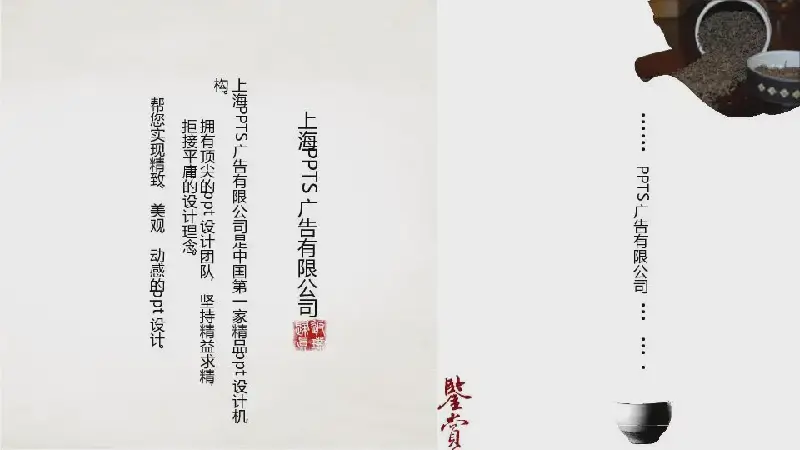 上海PPTS 广告有限公司
上海PPTS 广告有限公司是中国第一家精品ppt 设计机
构。
拥有顶尖的ppt 设计团队, 坚持精益求精
拒接平庸的设计理念。
帮您实现精致、美观、动感的ppt 设计.
...... PPTS 广告有限公司 ... ... .
鑒赏